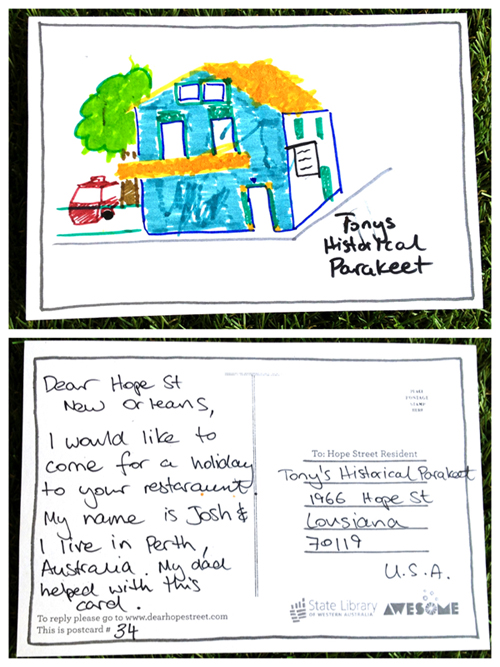 Tonys
Historical
Parakeet
Dear Hope St
New Orleans,
I would like to
come for a holiday
to your restaraunt.
My name is Josh &
I live in Perth,
Australia. My dad
helped with this
card.
To reply please go to www.dearhopestreet.com
This is postcard # 34
PLACE
POSTAGE
STAMP
HERE
To: Hope Street Resident
Tony's Historical Parakeet
1966 Hope St
Lousiana
70119
U.S.A.
State Library
OF WESTERN AUSTRALIA
AWESOME